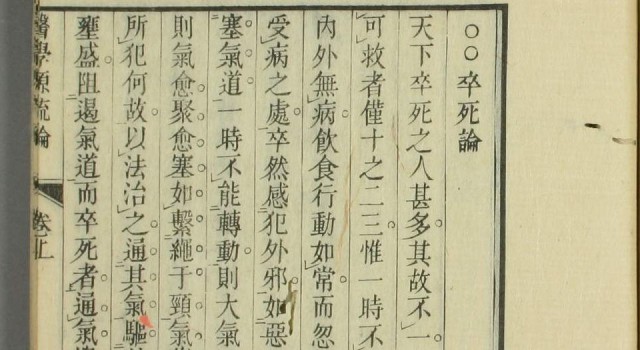 ○○卒死論
天下卒死之人甚多其故不一
可救者僅十之二三惟一時不
內外無病飲食行動如常而忽
受病之處卒然感犯外邪如惡
塞氣道一時不能轉動則大氣
則氣愈聚愈塞如繫繩于頸氣
所犯何故以法治之通其氣驅
壅盛阻遏氣道而卒死者通氣
醫學源流論 卷上